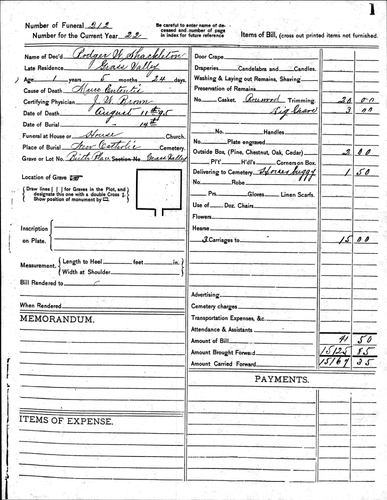 1
Number of Funeral 212
Number for the Current Year 22
Be carefull to enter name of deceased and number of page in index for future reference
Items of Bill, (cross out printed items not furnished.
Name of Dec'd Rodger W Shackleton
Late Residence Grass Valley
Age 1 years 5 months 24 days.
Cause of Death
Certifying Physician J. W. Brown
Date of Death August 11 95
Date of Burial 14th
Funeral at House or House Church.
Place of Burial New Catholic Cemetery.
Grave or Lot No. Section No. Grass Valley
Location of Grave
Draw lines [ | ] for Graves in the Plot, and designate this one with a double Cross
Show position of monument by
Inscription on Plate.
Measurement. Length to Heel feet in.
Width at Shoulder
Bill Rendered to
When Rendered
MEMORANDUM.
ITEMS OF EXPENSE.
Door Crape
Draperies Candelabra and Candles.
Washing & Laying out Remains, Shaving
Preservation of Remains
No. Casket. Trimming. 20 00
Dig Grave 3 00
No. Handles
Plate engraved
Outside Box, (Pine, Chestnut, Oak, Cedar) 2 00
P'l'Y H'd'l's Corners on Box.
Delivering to Cemetery Horse & buggy 1 50
No. Robe
Pm. Gloves Linen Scarfs.
Use of Doz. Chairs
Flowers
Hearse
3 Carriages to 15 00
Advertising
Cemetery charges
Transportation Expenses, &c.
Attendance & Assistants
Amount of Bill 41 50
Amount Brought Forward 15125 85
Amount Carried Forward 15167 35
PAYMENTS.